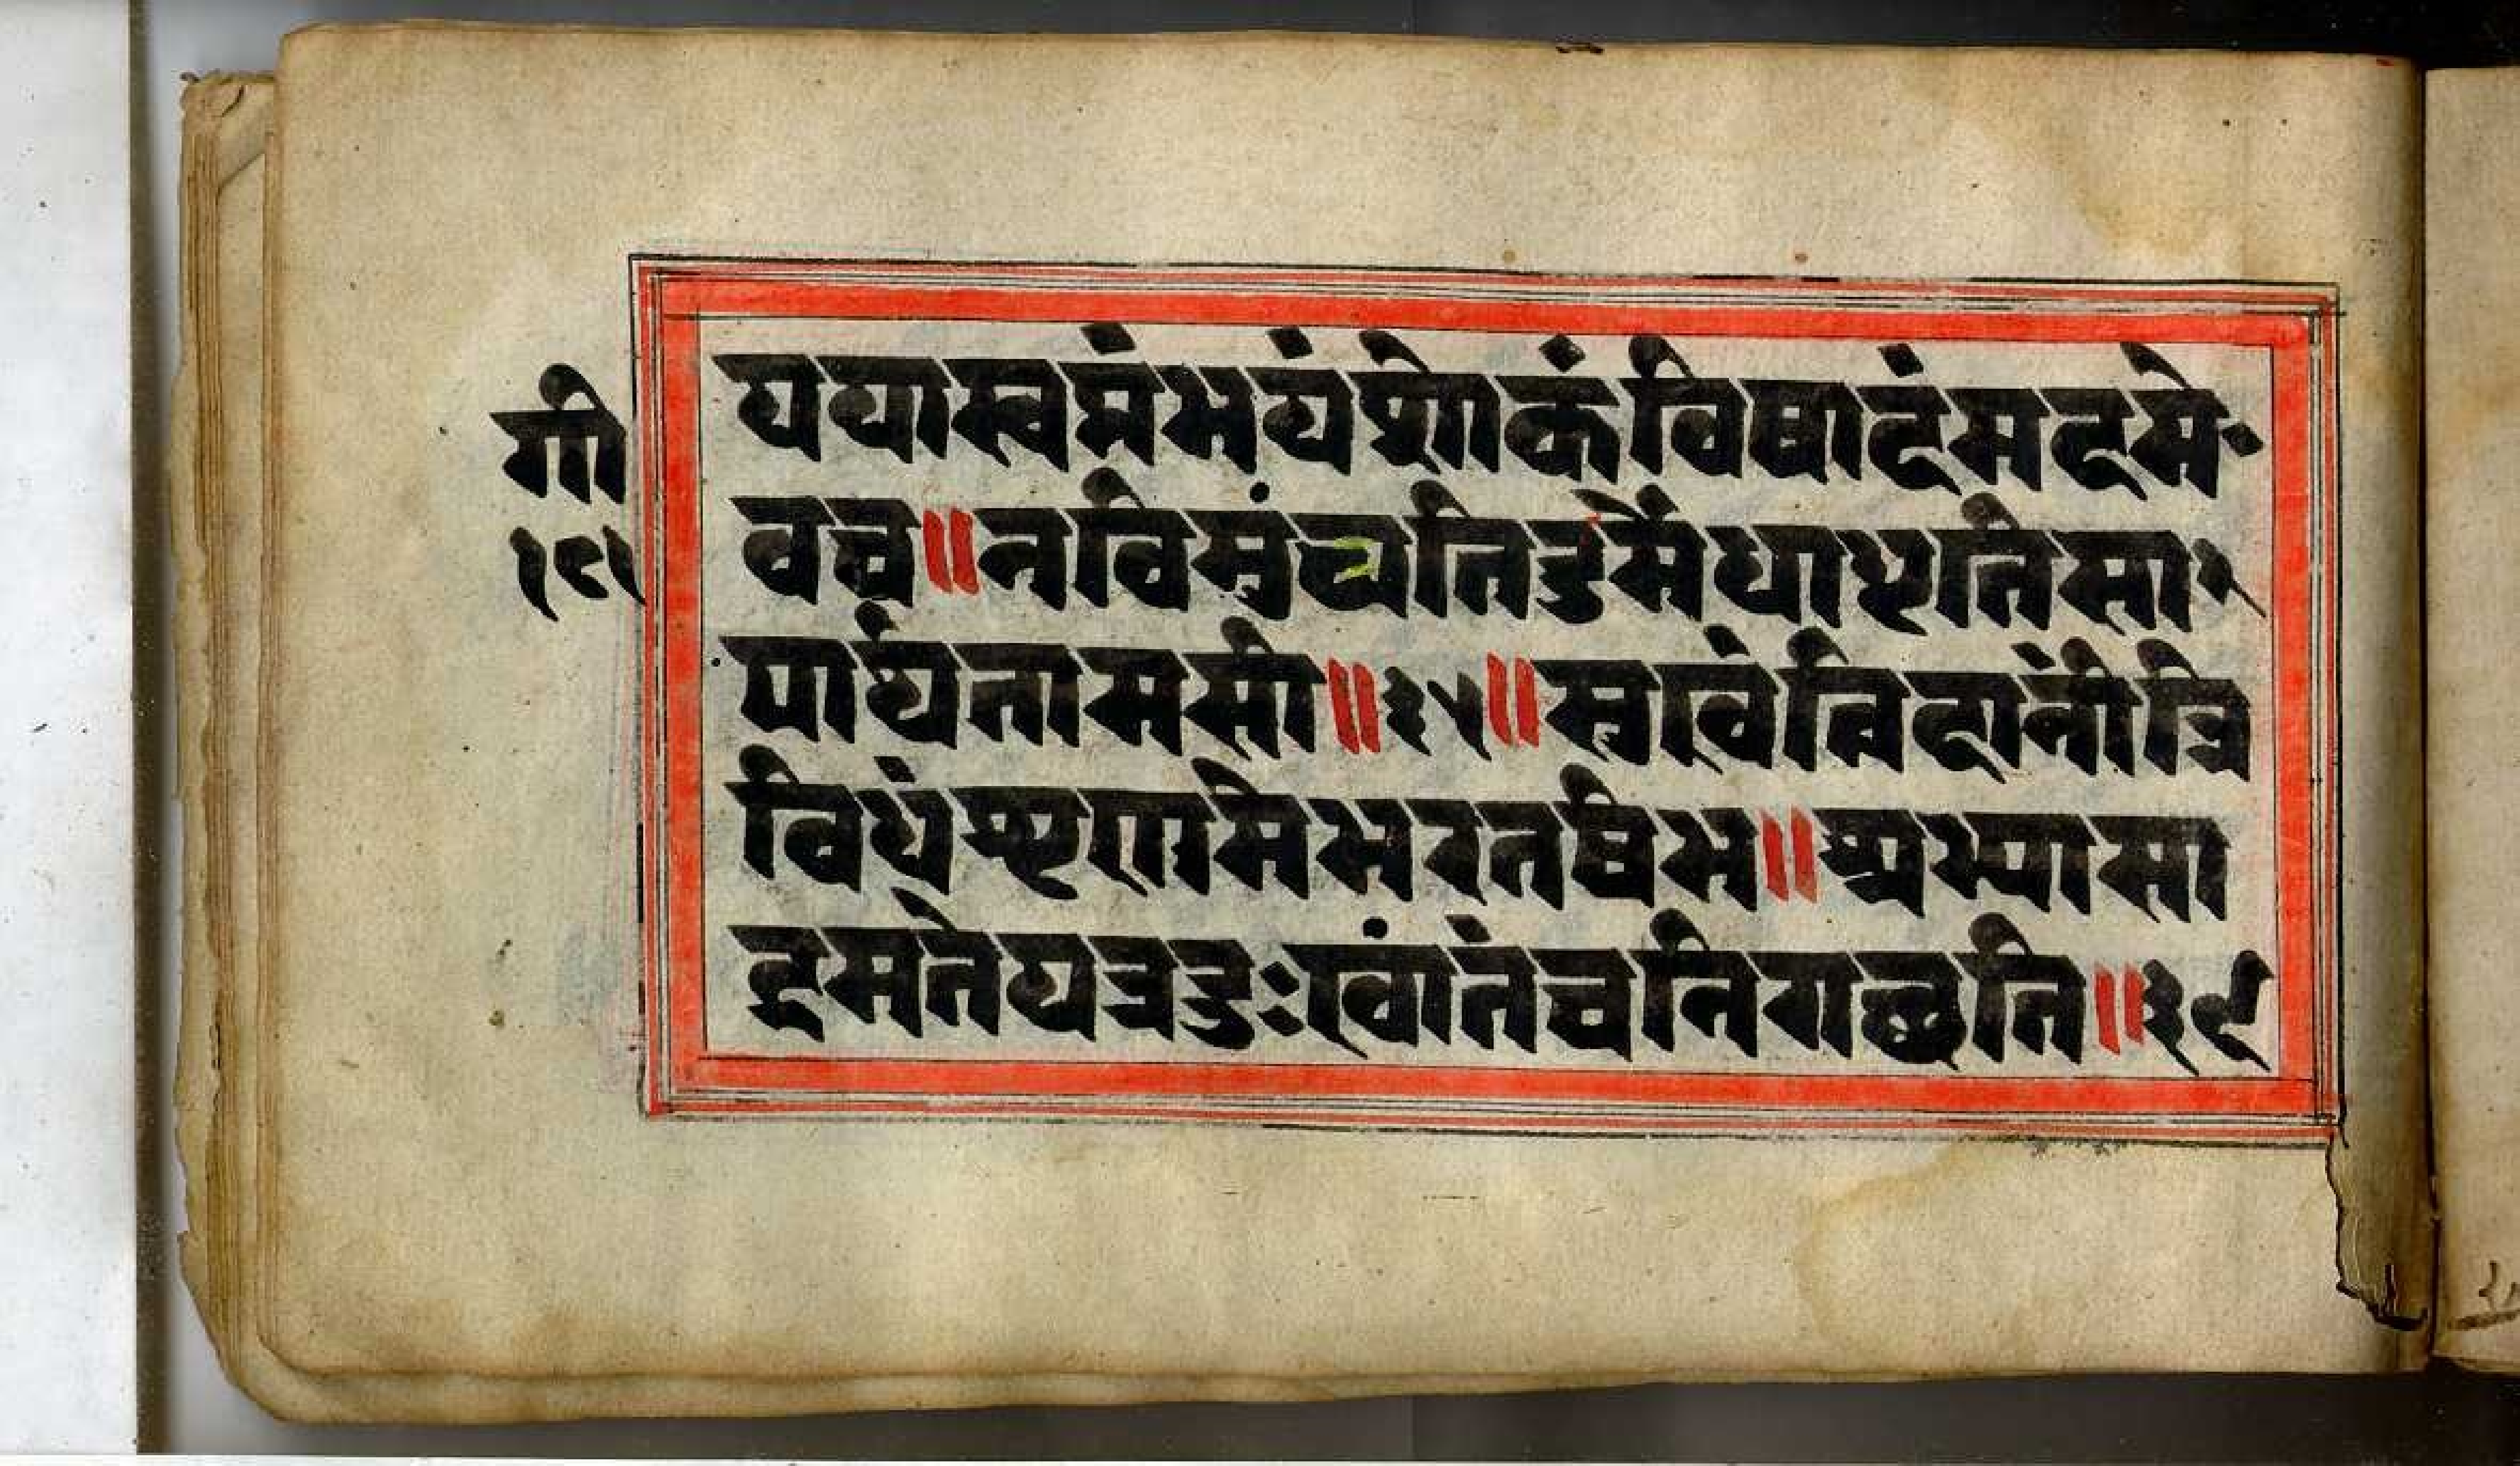 गी
१९५
ययास्वप्नंभयंशोकंविषादंमदमे-
वच॥नविमुंच्यतिदुर्मेधाधृतिसा
पार्थतामसी॥३५॥सुखंवेतिदानींत्रि
विधंशृणुमेभरतर्षभ॥अभ्यासा
द्रमतेयत्रदुःखांतंचनिगछति॥३६